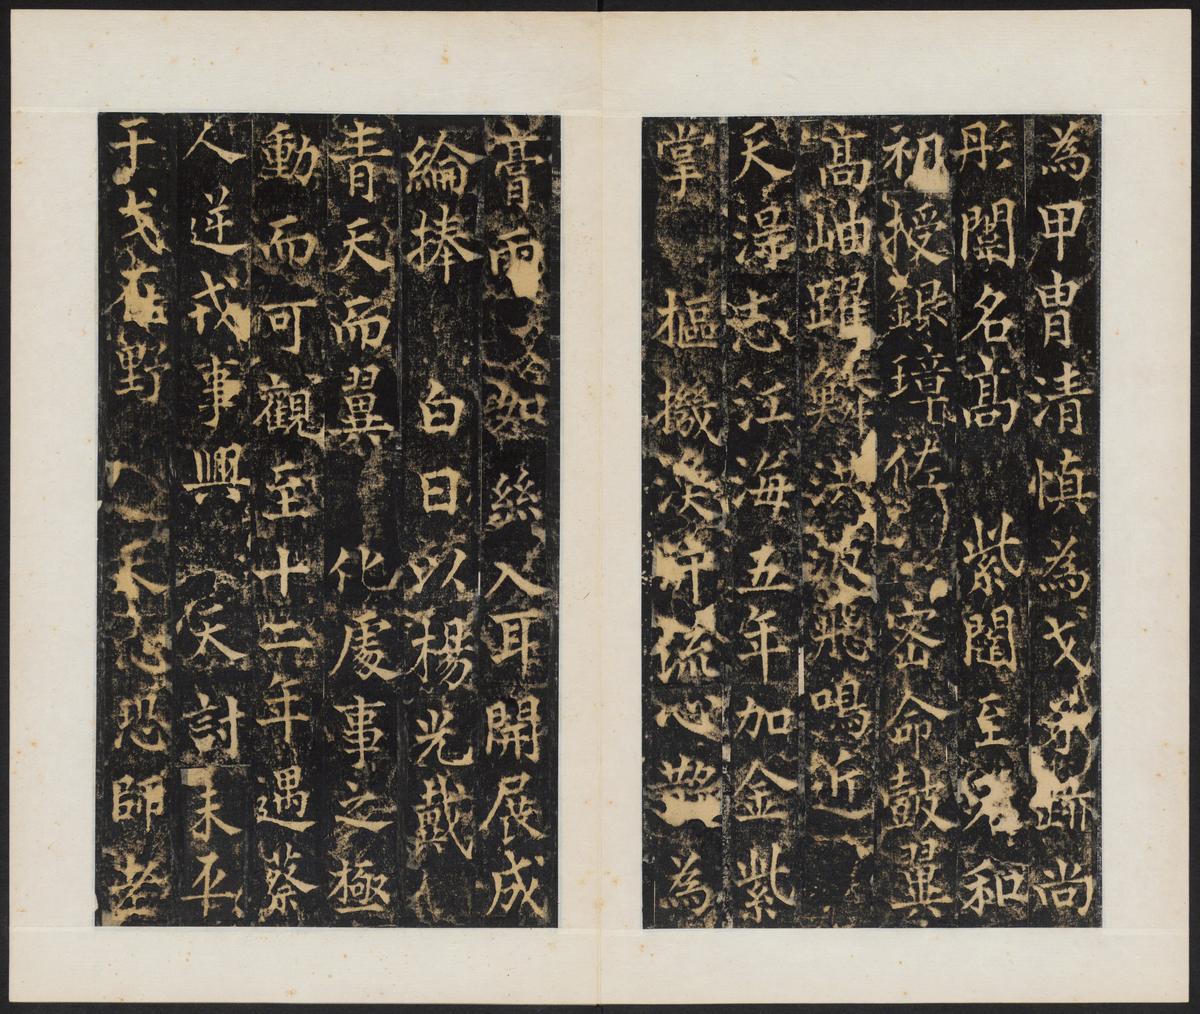 為甲胄清慎為戈矛疏尚
彤闈名高紫闥至若和
初授銀璋佐密命鼓翼
高岫躍鱗洪波飛鳴近
天澡志江海五年加金紫
掌樞機決斷流心勤為
膏雨如絲入耳開展成
綸捧白日以楊光戴
青天而翼化處事之極
動而可觀至十二年遇蔡
人逆戎事興天討未平
干戈在野恐師老